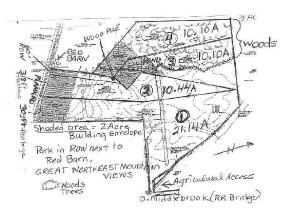 WOOD PILE
RED
BARN
ROW
POND
10.10A
10.10A
Woods
② 10.44A
① 21.14A
Shaded area = 2 Acre
Building Envelope
Park in ROW next to
Red Barn,
GREAT NORTHEAST Mountain
VIEWS
Woods
Trees
Agricultural Access
O. Middlebrook (RR Bridge)